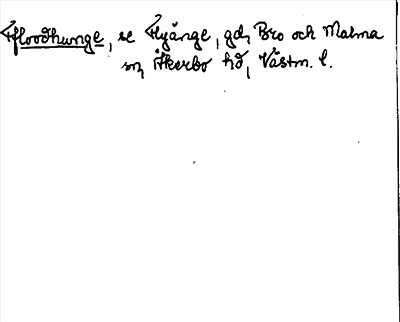 Ffloodhunge, se Flyänge, gd, Bro och Malma
sn, Åkerbo hd, Västm. l.